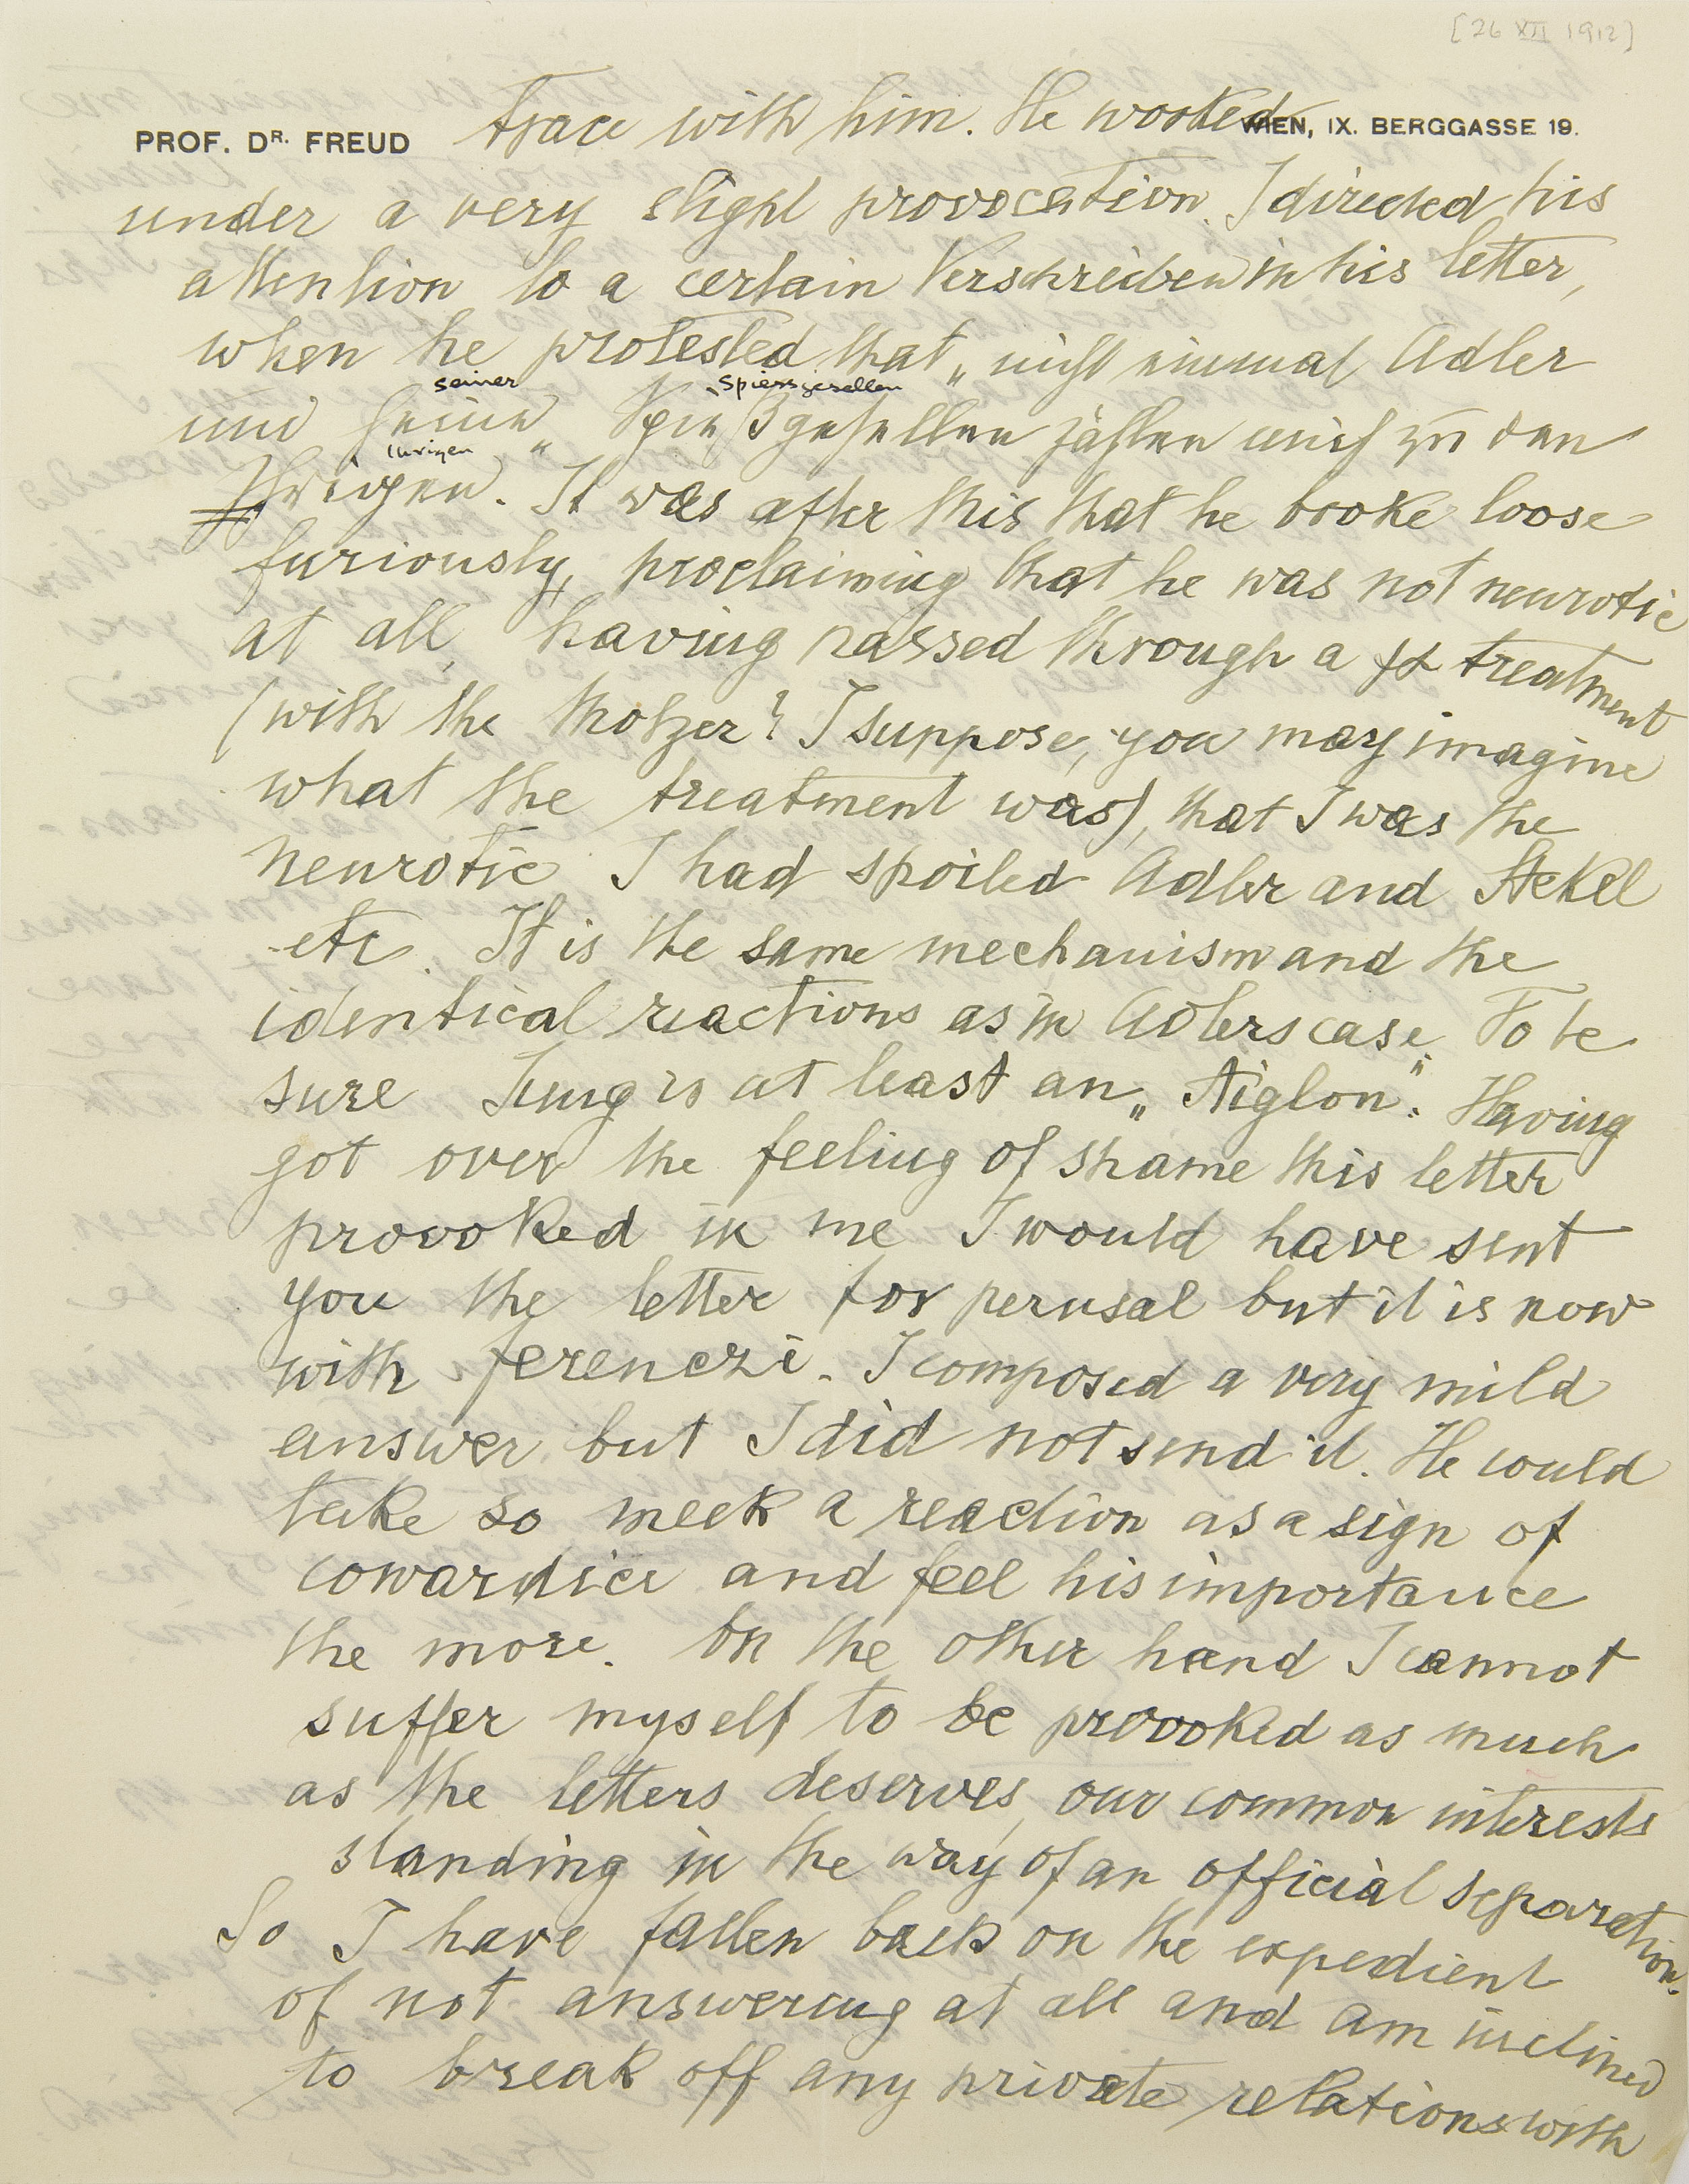 [26 XII 1912]
PROF. DR. FREUD
WIEN, IX. BERGGASSE 19.
trace with him. He worked
under a very slight provocation. I directed his
attention to a certain Verschreiben in his letter,
when he protested that „nicht einmal Adler
seiner Spiessgesellen
und seine „Spießgesellen zählen mich zu den
Ihrigen
Ihrigen. It was after this that he broke loose
furiously, proclaiming that he was not neurotic
at all, having passed through a ψα treatment
(with the Moltzer? I suppose, you may imagine
what the treatment was), that I was the
neurotic I had spoiled Adler and Stekel
etc. It is the same mechanism and the
identical reactions as in Adlers case. To be
sure Jung is at least an „Aiglon“. Having
got over the feeling of shame this letter
provoked in me I would have sent
you the letter for perusal but it is now
with Ferenczi. I composed a very mild
answer but I did not send it. He would
take so meek a reaction as a sign of
cowardice and feel his importance
the more. On the other hand I cannot
suffer myself to be provoked as much
as the letters deserves, our common interests
standing in the way of an official separation.
So I have fallen back on the expedient
of not answering at all and am inclined
to break off any private relations with